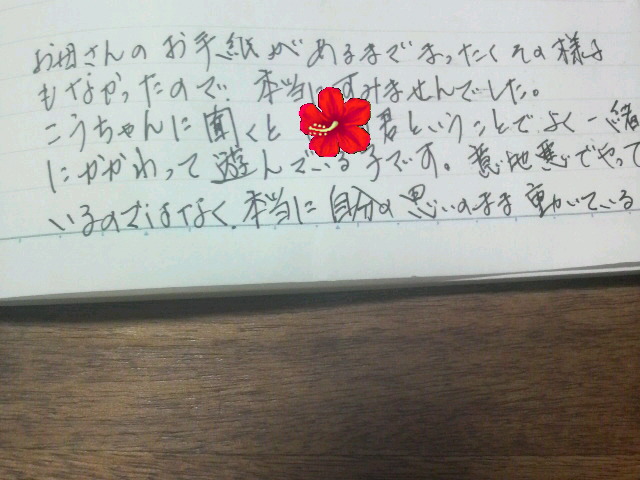 お母さんのお手紙があるまでまったくその様子
もなかったので、本当にすみませんでした。
こうちゃんに聞くと 君ということでよく一緒
にかかわって遊んでいる子です。意地悪でやって
いるのではなく、本当に自分の思いのまま動いている